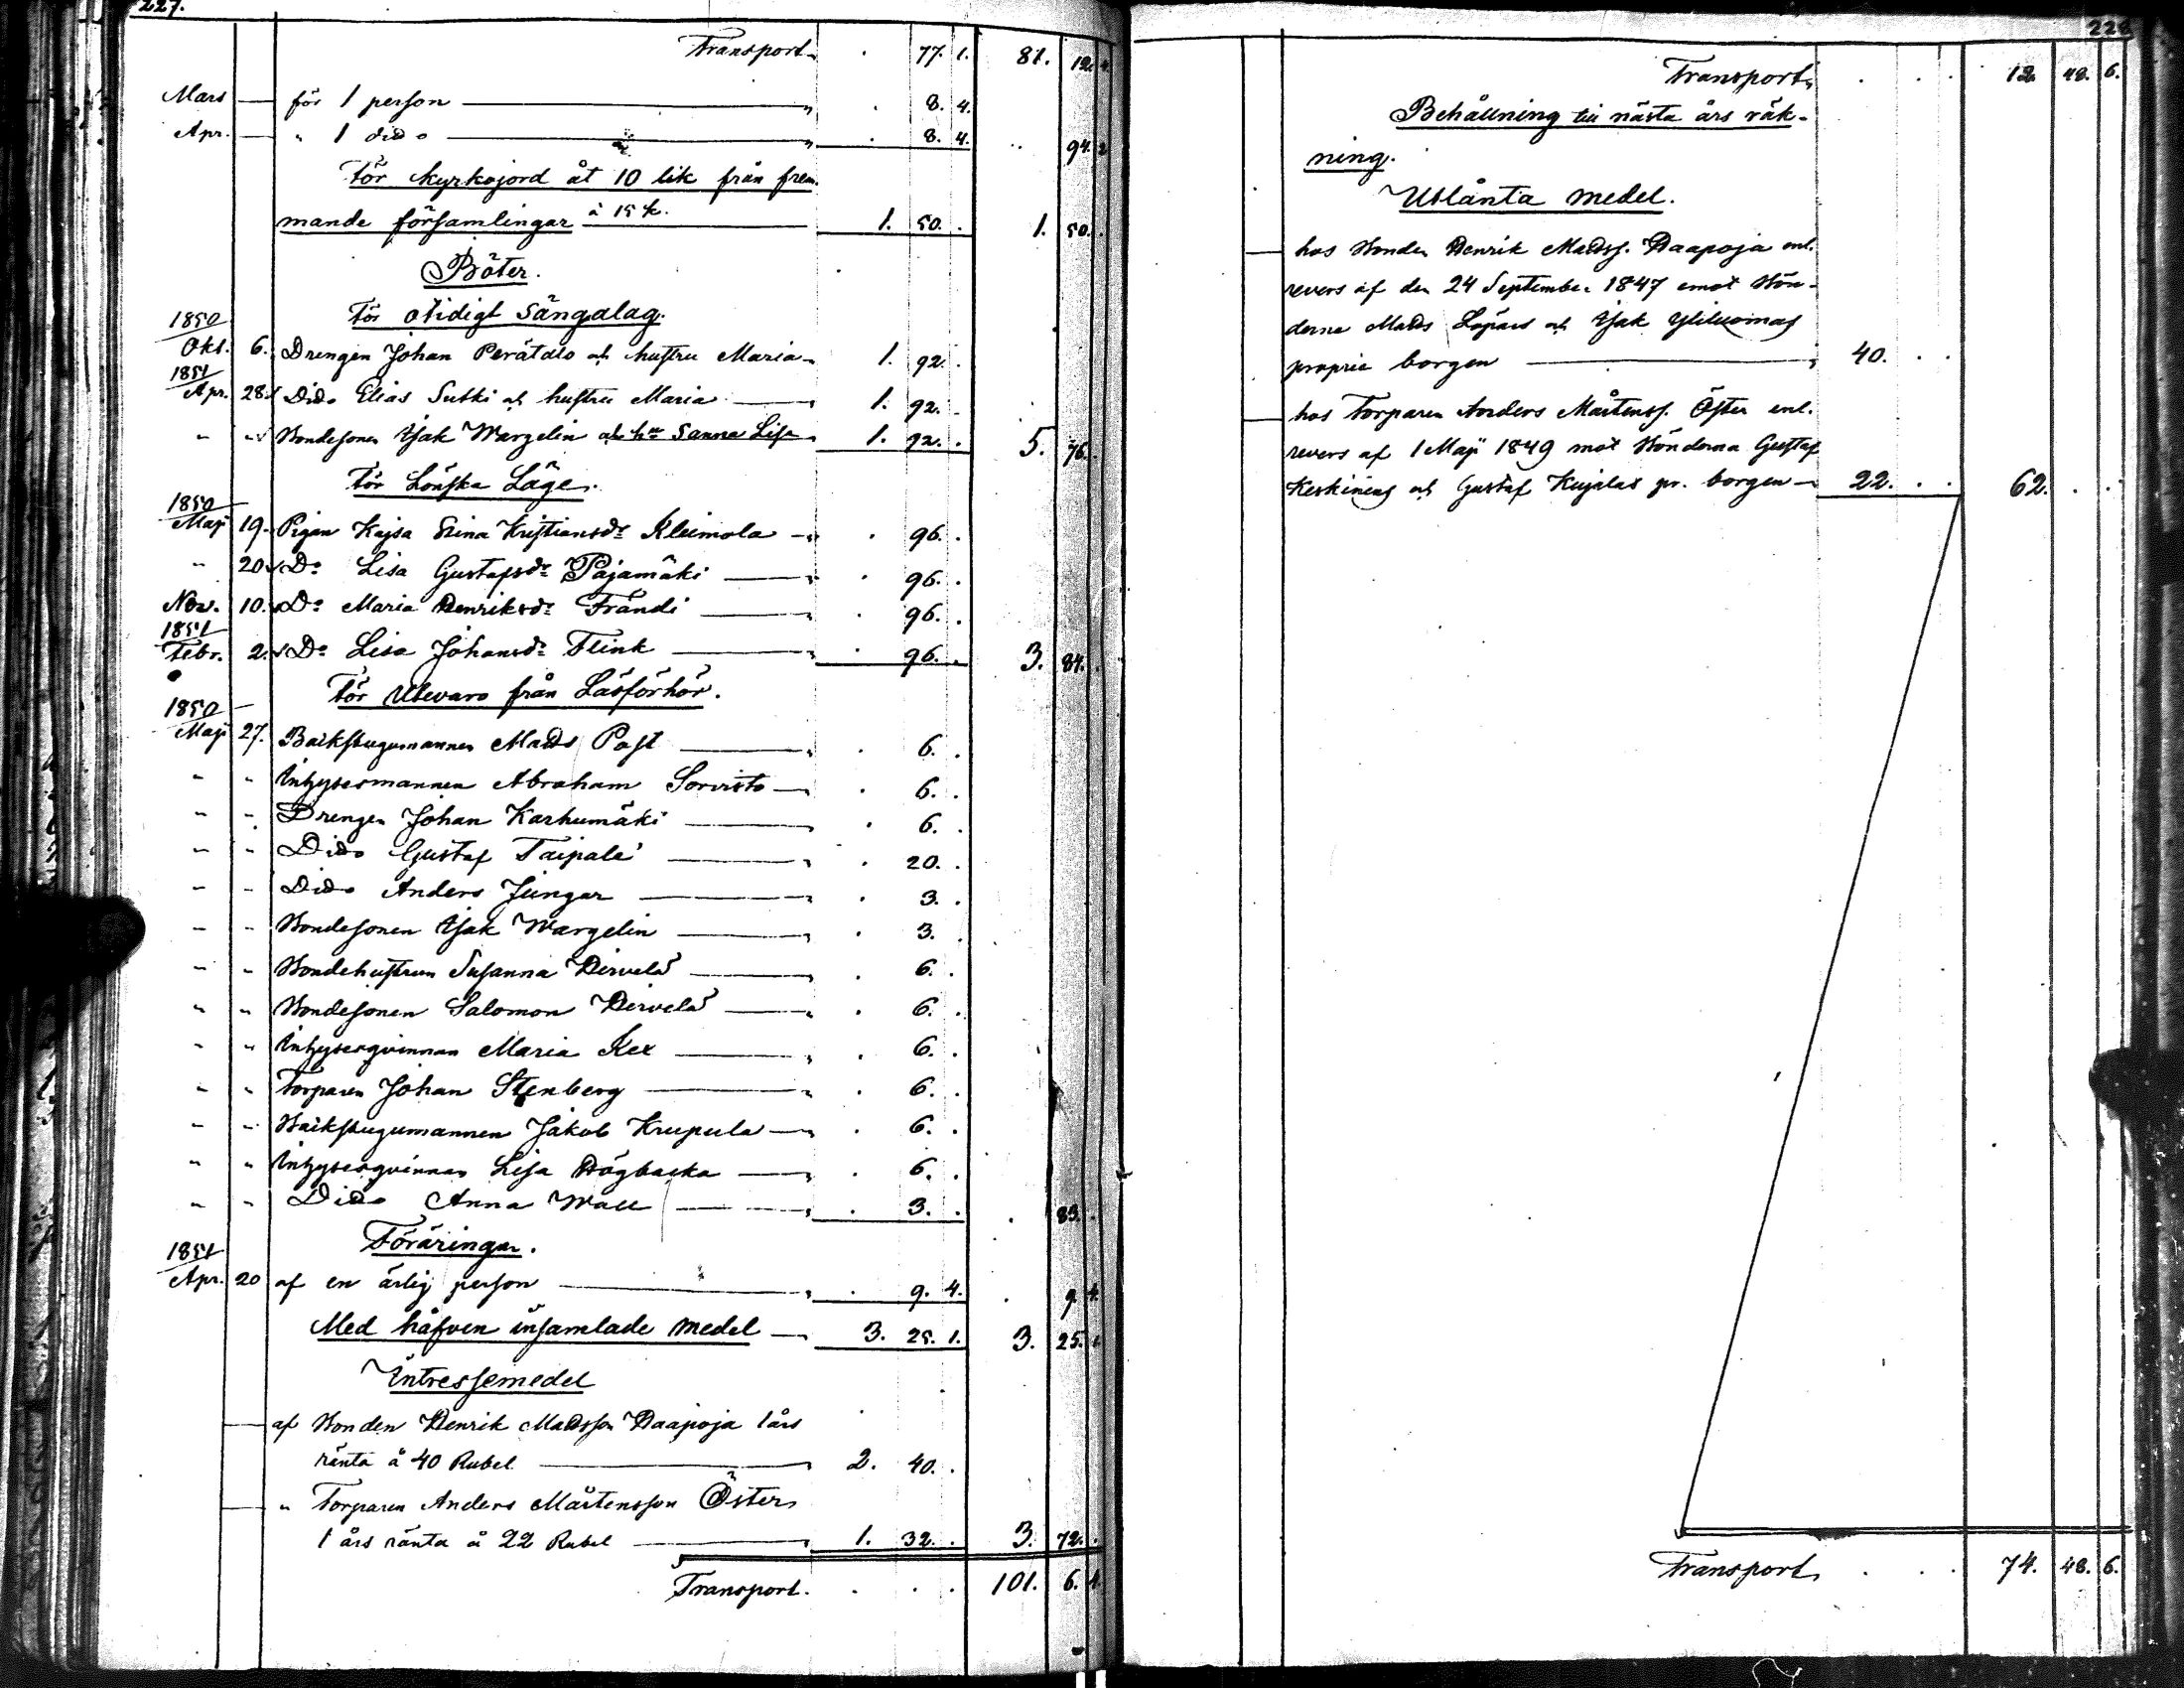 227.
Transport „ . 77. 1. 81. 12. 4.
Mars — för 1 person — „ . 8. 4.
Apr. — " 1 dido — „ . 8. 4. .. 94. 2
För kyrkojord åt 10 lik från frem-
mande församlingar à 15 k. — 1. 50. . 1. 50. .
Böter.
För otidigt Sängalag.
1850
Okt. 6. Drengen Johan Perätalo och hustru Maria „ 1. 92. .
1851
Apr. 28. Dido Elias Sutki och hustru Maria — „ 1. 92. .
" " Bondesonen Isak Wargelin och hu Sanna Lisa „ 1. 92. . 5. 76. .
För Lönska Läge.
1850
Maji 19. Pigan Kajsa Stina Kristiansdr Kleimola — „ . 96. .
" 20. Do Lisa Gustafsdr Pajamäki — „ . 96. .
Nov. 10. Do Maria Henriksdr Frändi — „ . 96. .
1851
Febr. 2. Do Lisa Johansdr Flink — „ . 96. . 3. 84. .
För Utevaro från Läsförhör.
1850
Maji 27. Backstugumannen Mads Post — „ . 6. .
" " Inhysesmannen Abraham Sorvisto — „ . 6. .
" " Drengen Johan Karhumäki — „ . 6. .
" " Dido Gustaf Taipale — „ . 20. .
" " Dido Anders Jungar — „ . 3. .
" " Bondesonen Isak Wargelin — „ . 3. .
" " Bondehustrun Susanna Hirvelä — „ . 6. .
" " Bondesonen Salomon Hirvelä — „ . 6. .
" " Inhysesqvinnan Maria Kex — „ . 6. .
" " Torparen Johan Stenberg — „ . 6. .
" " Backstugumannen Jakob Krupula — „ . 6. .
" " Inhysesqvinnan Lisa Högbacka — „ . 6. .
" " Dido Anna Wall — „ . 3. . . 83. .
Föräringar.
1851
Apr. 20 af en ärlig person — „ . 9. 4. . 9. 4.
Med håfven insamlade medel — 3. 25. 1. 3. 25. 1.
Intressemedel
— af Bonden Henrik Madsson Haapoja 1 års
ränta å 40 Rubel — „ 2. 40. .
— " Torparen Anders Mårtensson Öster
1 års ränta å 22 Rubel — „ 1. 32. . 3. 72. .
Transport. . . . 101. 6. 4.
228
Transport „ . . . 12. 48. 6.
Behållning till nästa års räk-
ning.
Utlånta medel.
— hos Bonden Henrik Madss. Haapoja enl.
revers af den 24 September 1847 emot Bön-
derne Mads Lopars och Isak Yliluomas
proprie borgen — „ 40. . .
— hos Torparen Anders Mårtenss. Öster enl.
revers af 1 Maji 1849 mot Bönderna Gustaf
Keskinens och Gustaf Kujalas pr. borgen — 22. . . 62. . .
Transport „ . . . 74. 48. 6.